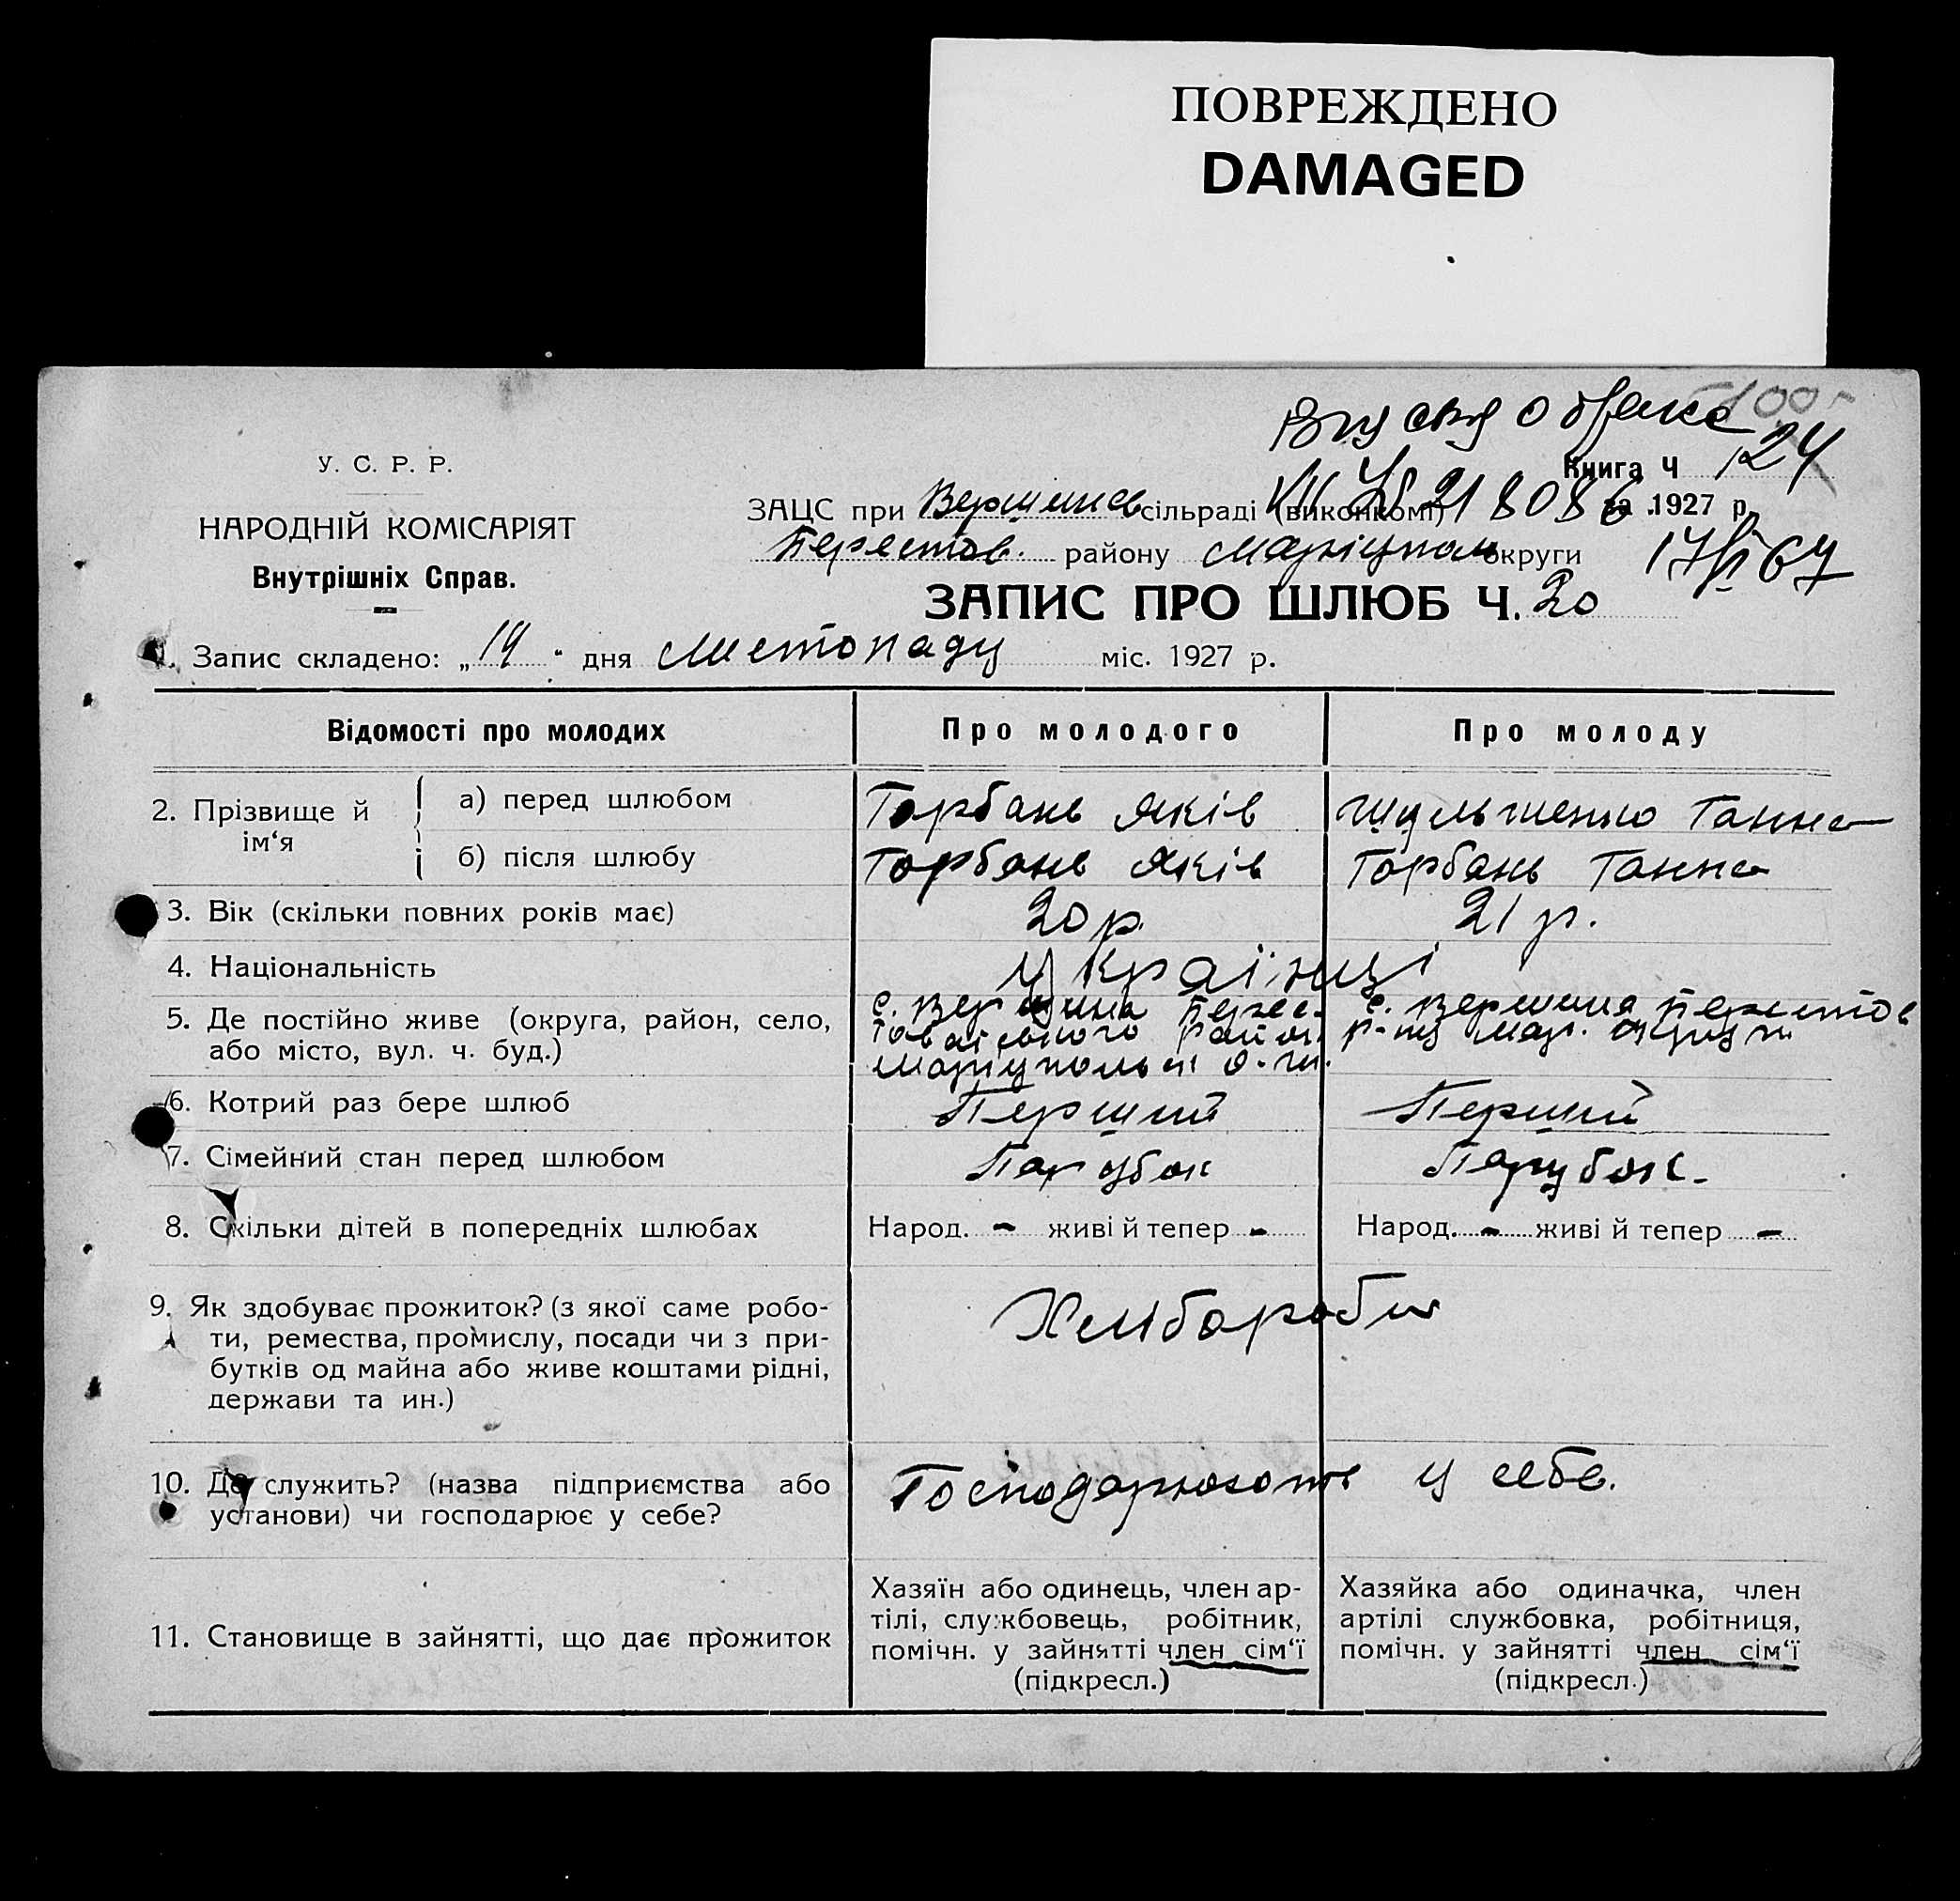 ПОВРЕЖДЕНО
DAMAGED
о браке
100
У. С. Р. Р.
Книга Ч 124
НАРОДНІЙ КОМІСАРІЯТ
ЗАЦС при Вершинов сільраді (виконкомі) 218086 за 1927 р.
Внутрішніх Справ.
Берестов. району Маріупол округи 17/VI 67
ЗАПИС ПРО ШЛЮБ Ч. 20
1. Запис складено: „14“ дня Листопаду міс. 1927 р.
Відомості про молодих Про молодого Про молоду
2. Прізвище й ім‘я
а) перед шлюбом Горбань Яків Ганна
б) після шлюбу Горбань Яків Горбань Ганна
3. Вік (скільки повних років має) 20 р. 21 р.
4. Національність Українці
5. Де постійно живе (округа, район, село,
або місто, вул. ч. буд.)
с. Вершина Берес-
товського район.
Маріупольськ о-ги.
с. Вершина Берестов
р-ну Мар. округи
6. Котрий раз бере шлюб Перший Перший
7. Сімейний стан перед шлюбом Парубок Парубок.
8. Скільки дітей в попередніх шлюбах Народ. - живі й тепер - Народ. - живі й тепер -
9. Як здобуває прожиток? (з якої саме робо-
ти, ремества, промислу, посади чи з при-
бутків од майна або живе коштами рідні,
держави та ин.)
Хлібороби
10. Де служить? (назва підприємства або
установи) чи господарює у себе?
Господарюють у себе.
11. Становище в зайнятті, що дає прожиток
Хазяїн або одинець, член ар-
тілі, службовець, робітник,
помічн. у зайнятті член сім‘ї
(підкресл.)
Хазяйка або одиначка, член
артілі службовка, робітниця,
помічн. у зайнятті член сім‘ї
(підкресл.)